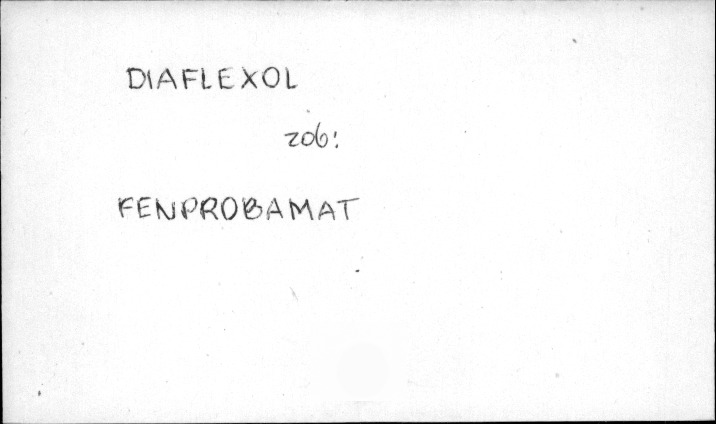 DIAFLEXOL
zob:
FENPROBAMAT